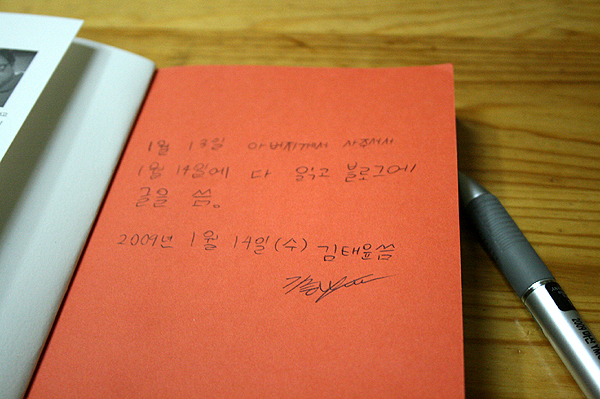 1월 13일 아버지께서 사주셔서
1월 14일에 다 읽고 블로그에
글을 씀.
2009년 1월 14일(수) 김태윤씀